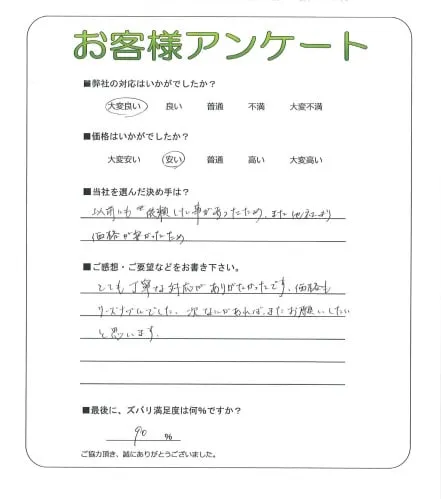 お客様アンケート
■弊社の対応はいかがでしたか?
大変良い 良い 普通 不満 大変不満
■価格はいかがでしたか?
大変安い 安い 普通 高い 大変高い
■当社を選んだ決め手は?
以前にも依頼した事があったため、また他社より
価格が安かったため
■ご感想・ご要望などをお書き下さい。
とても丁寧な対応がありがたかったです。価格も
リーズナブルでした。次なにかあれば、またお願いしたい
と思います。
■最後に、ズバリ満足度は何%ですか?
90 %
ご協力頂き、誠にありがとうございました。